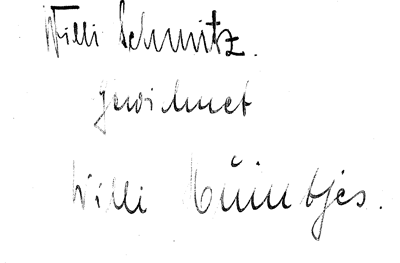 Willi Schmitz.
gewidmet
Willi